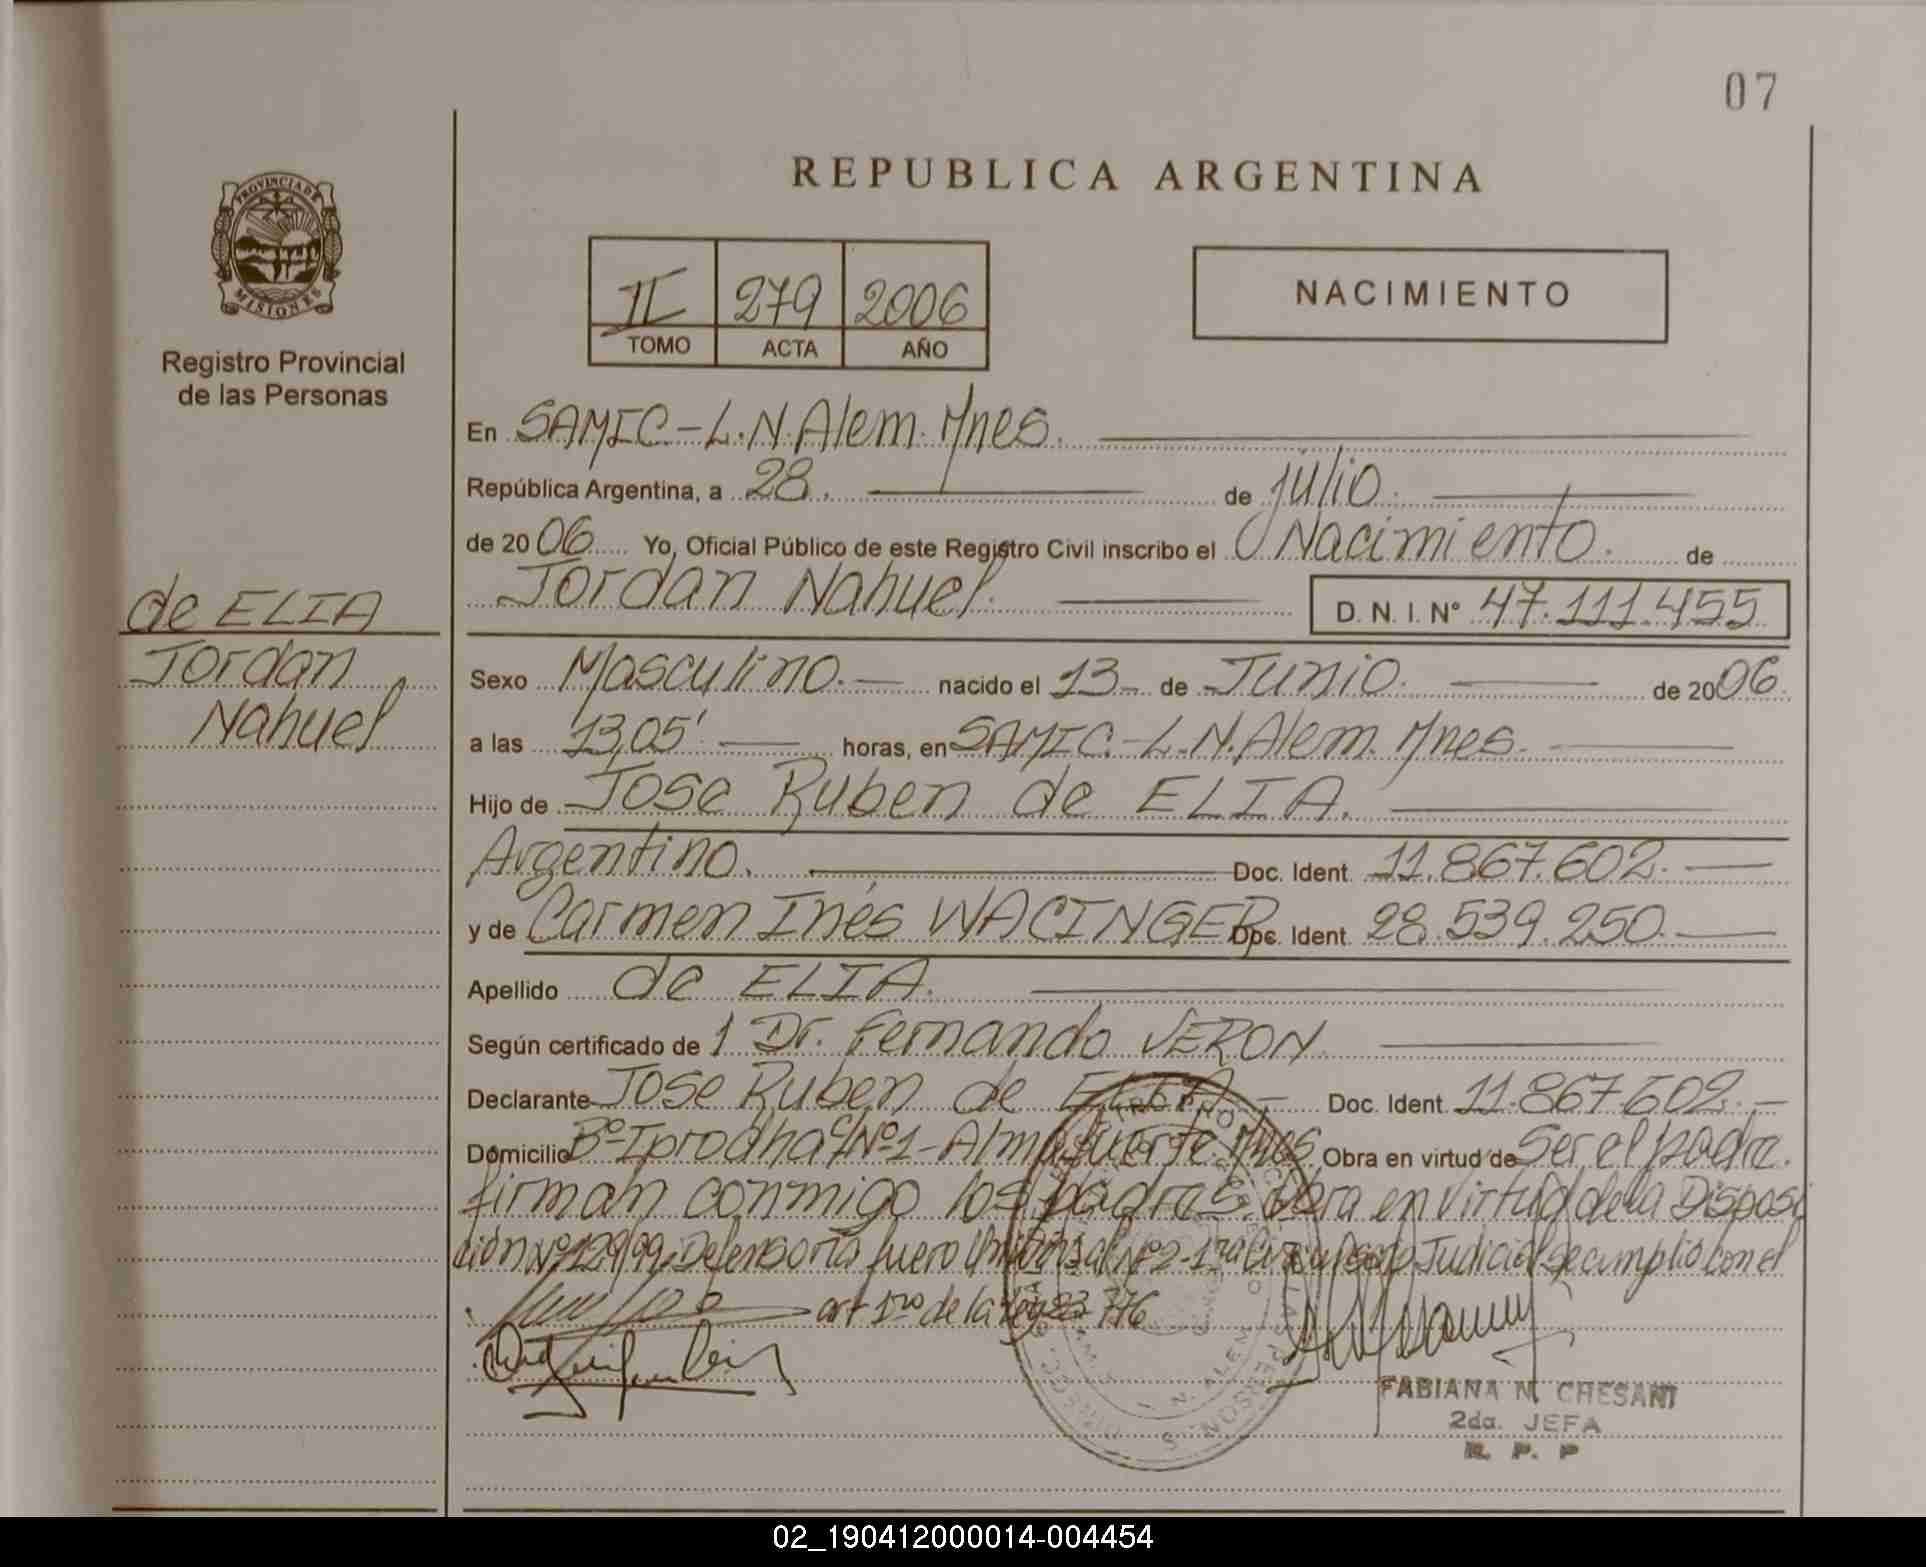 07
REPUBLICA ARGENTINA
PROVINCIA DE
MISIONES
Registro Provincial
de las Personas
II 279 2006
TOMO ACTA AÑO
NACIMIENTO
En SAMIC-L.N.Alem.Mnes.
República Argentina, a 28. de julio.
de 2006 Yo, Oficial Público de este Registro Civil inscribo el Nacimiento. de
Jordan Nahuel. D. N. I. Nº 47.111.455
de ELIA
Jordan
Nahuel
Sexo Masculino.- nacido el 13- de Junio. de 2006.
a las 13,05' horas, en SAMIC.-L.N.Alem.Mnes.
Hijo de Jose Ruben de ELIA.
Argentino. Doc. Ident. 11.867.602.-
y de Carmen Inés WACINGER Doc. Ident. 28.539.250.-
Apellido de ELIA.
Según certificado de 1 Dr. Fernando VERON
Declarante Jose Ruben de ELIA - Doc. Ident. 11.867.602.-
Domicilio Bº Iprodha Nº1-Almafuerte.Mnes. Obra en virtud de Ser el padre.
firman conmigo los padres. Obra en virtud de la Disposi
ción Nº129/99. Defensoría fuero Universal Nº2-1ra Judicial Se cumplió con el
art 1ro de la ley 23776
FABIANA N. CHESANI
2da. JEFA
R. P. P
02_190412000014-004454